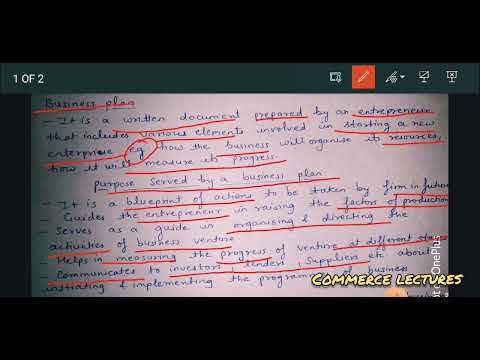 1 OF 2
Business plan
- It is a written document prepared by an entrepreneur
that includes various elements involved in starting a new
enterprise eg how the business will organise its resources,
how it will measure its progress.
Purpose served by a business plan
- It is a blueprint of actions to be taken by firm in future
- Guides the entrepreneur in raising the factors of production
- Serves as a guide in organising & directing the
activities of business venture.
- Helps in measuring the progress of venture at different stages
- Communicates to investors, lenders, suppliers etc about
initiating & implementing the programme of business
Commerce lectures
OnePlus